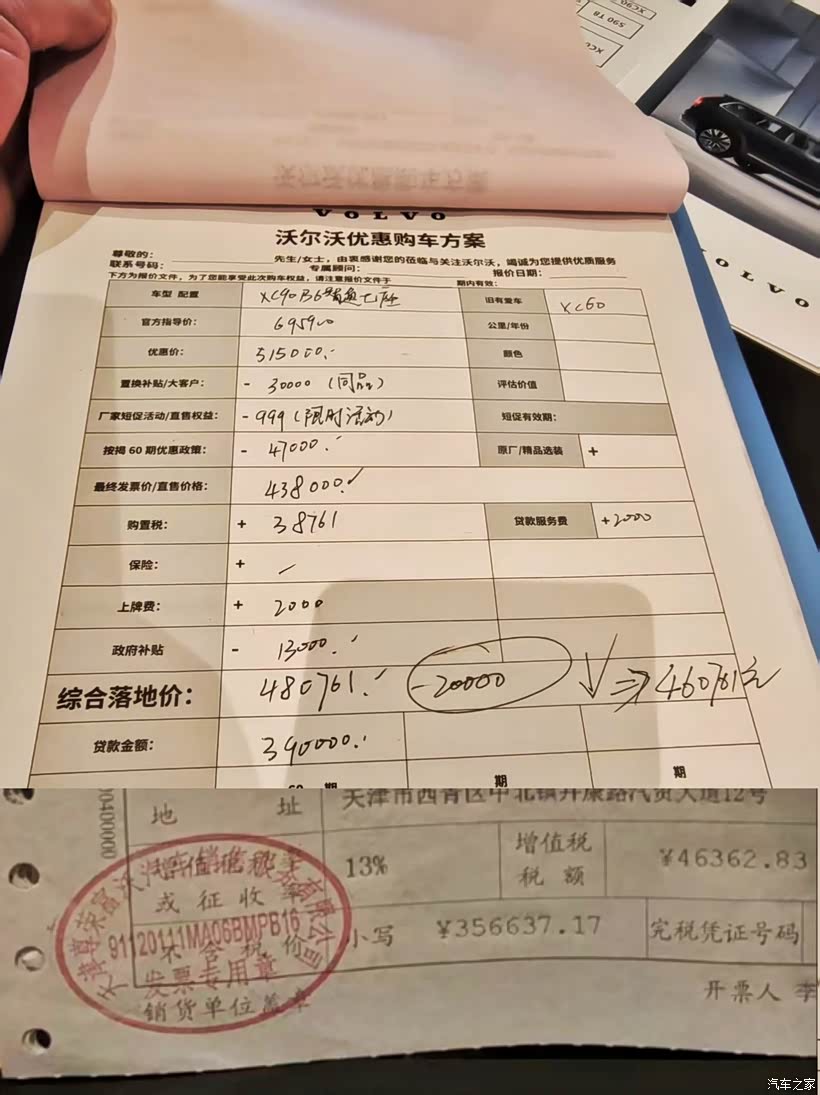 S90 T8
XC90
VOLVO
VOLVO
沃尔沃优惠购车方案
尊敬的： 先生/女士，由衷感谢您的莅临与关注沃尔沃，竭诚为您提供优质服务
联系号码： 专属顾问： 报价日期：
下方为报价文件，为了您能享受此次购车权益，请注意报价文件于 期内有效：
车型 配置 XC90 B6智逸七座 旧有爱车 XC60
官方指导价： 695900 公里/年份
优惠价： 515000. 颜色
置换补贴/大客户： - 30000（同品） 评估价值
厂家短促活动/直售权益： -999（限时活动） 短促有效期：
按揭 60 期优惠政策： - 47000. 原厂/精品选装 +
最终发票价/直售价格： 438000.
购置税： + 38761 贷款服务费 +2000
保险： +
上牌费： + 2000
政府补贴 - 13000.
综合落地价： 480761. -20000 ⇒460761元
贷款金额： 390000.
期 期 期
00400000
地 址 天津市西青区中北镇开源路汽贸大道12号
增值税税率或征收率 13% 增值税税额 ¥46362.83
不含税价 小写 ¥356637.17 完税凭证号码
91120111MA06BMPB16
发票专用章
销货单位盖章
开票人 李
汽车之家